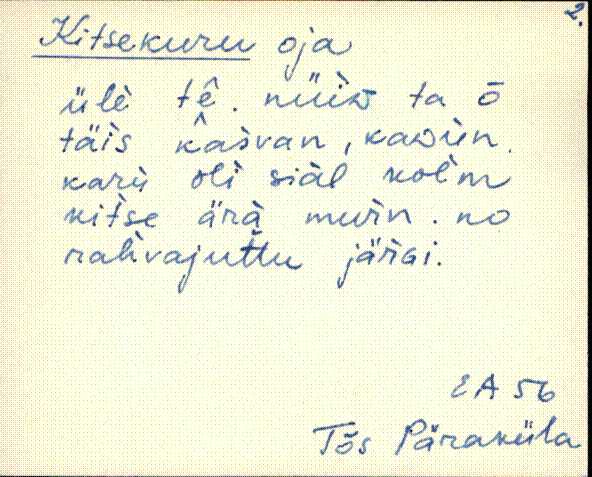 2.
Kitsekuru oja
üle tê. nüìd ta ō
täìs kàsvan, kadùn.
karù olì siàl kolm
kìtse ärà murn. no
rahvajuttu järgi.
EA 56
Tõs Päraküla